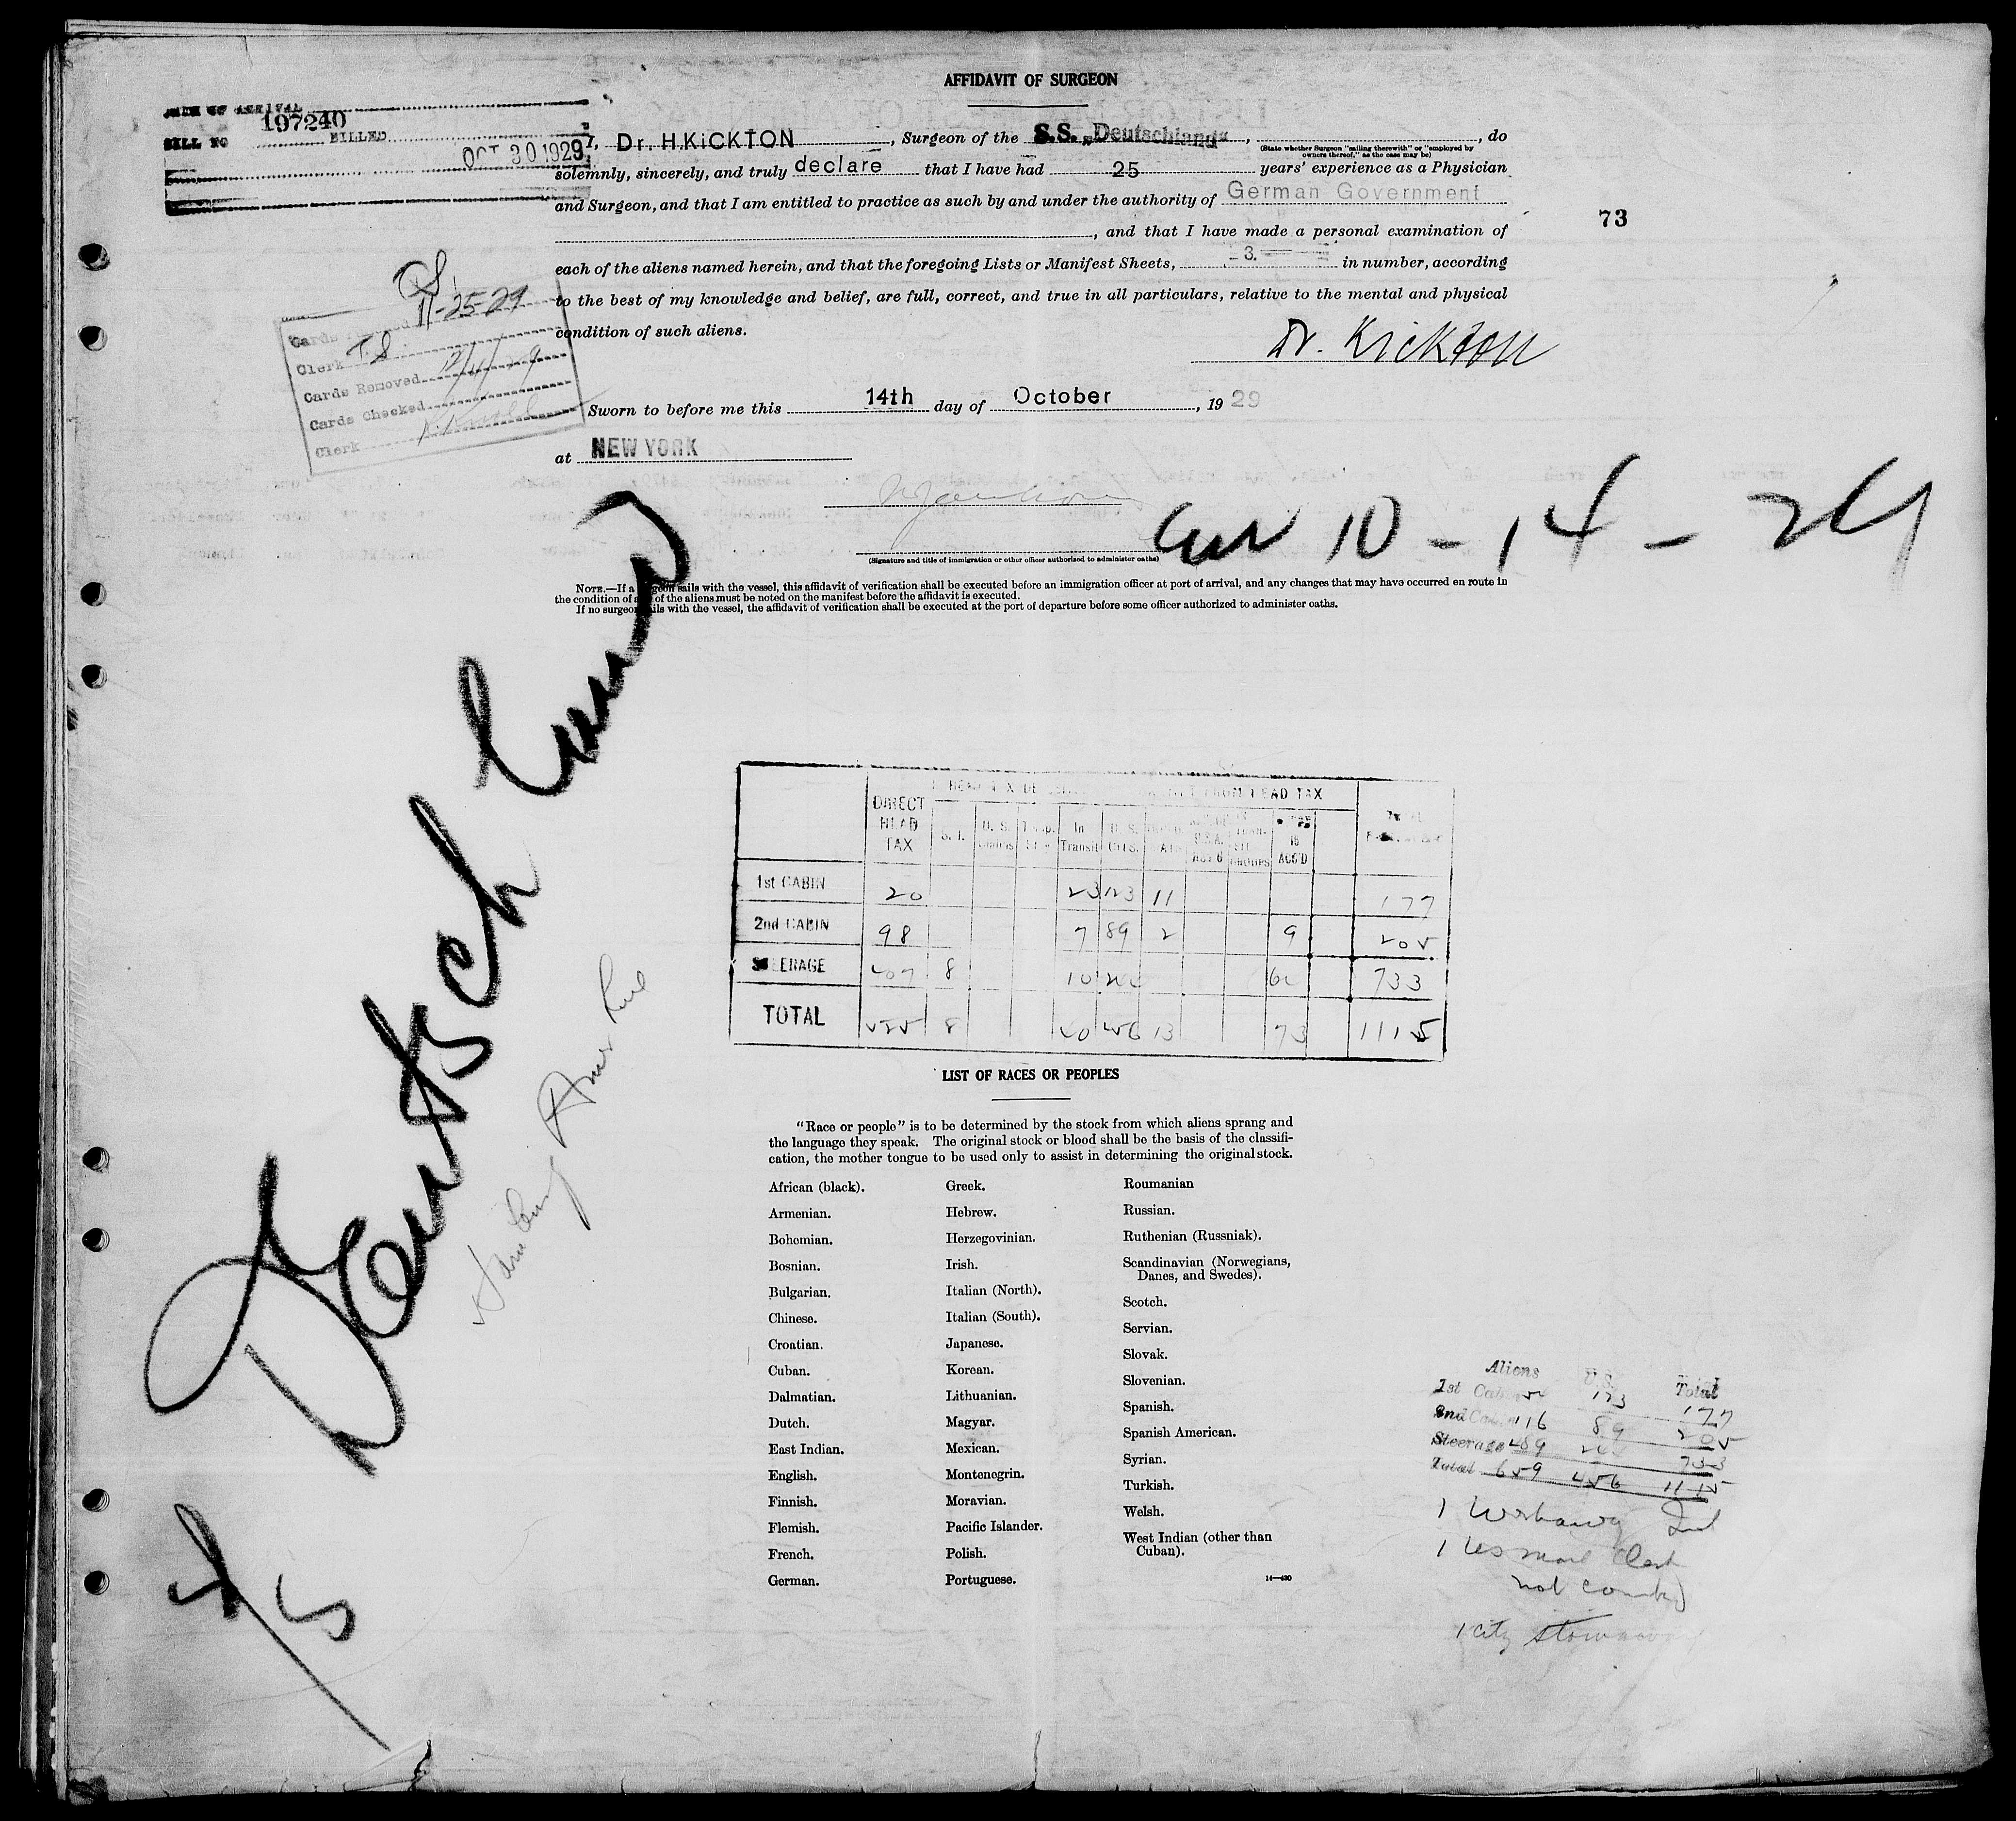 AFFIDAVIT OF SURGEON
DATE OF ARRIVAL
BILL NO 197240 BILLED OCT 30 1929
I, Dr. H.KiCKTON, Surgeon of the S.S. „Deutschland“, , do
(State whether Surgeon "sailing therewith" or "employed by
owners thereof," as the case may be)
solemnly, sincerely, and truly declare that I have had 25 years' experience as a Physician
and Surgeon, and that I am entitled to practice as such by and under the authority of German Government
, and that I have made a personal examination of
each of the aliens named herein, and that the foregoing Lists or Manifest Sheets, 3. in number, according
to the best of my knowledge and belief, are full, correct, and true in all particulars, relative to the mental and physical
condition of such aliens.
73
Dr. Kickton
11-25-29
Cards
Clerk T.S.
Cards Removed 12/11/29
Cards Checked
Clerk
Sworn to before me this 14th day of October, 19 29
at NEW YORK
arr 10-14-29
(Signature and title of immigration or other officer authorized to administer oaths)
NOTE.—If a surgeon sails with the vessel, this affidavit of verification shall be executed before an immigration officer at port of arrival, and any changes that may have occurred en route in
the condition of any of the aliens must be noted on the manifest before the affidavit is executed.
If no surgeon sails with the vessel, the affidavit of verification shall be executed at the port of departure before some officer authorized to administer oaths.
Deutschland
Hamburg Amer Line
DIRECT HEAD TAX
HEAD TAX FROM HEAD TAX
S. I. U. S. Trsp. In Transit U. S. Cits. IS ACC'D
1st CABIN 20 23 123 11 177
2nd CABIN 98 7 89 2 9 205
STEERAGE 407 8 10 244 64 733
TOTAL 525 8 40 456 13 73 1115
LIST OF RACES OR PEOPLES
"Race or people" is to be determined by the stock from which aliens sprang and
the language they speak. The original stock or blood shall be the basis of the classifi-
cation, the mother tongue to be used only to assist in determining the original stock.
African (black).
Armenian.
Bohemian.
Bosnian.
Bulgarian.
Chinese.
Croatian.
Cuban.
Dalmatian.
Dutch.
East Indian.
English.
Finnish.
Flemish.
French.
German.
Greek.
Hebrew.
Herzegovinian.
Irish.
Italian (North).
Italian (South).
Japanese.
Korean.
Lithuanian.
Magyar.
Mexican.
Montenegrin.
Moravian.
Pacific Islander.
Polish.
Portuguese.
Roumanian
Russian.
Ruthenian (Russniak).
Scandinavian (Norwegians,
Danes, and Swedes).
Scotch.
Servian.
Slovak.
Slovenian.
Spanish.
Spanish American.
Syrian.
Turkish.
Welsh.
West Indian (other than
Cuban).
14—430
Aliens U.S. Total
1st Cabin 54 123 177
2nd Cabin 116 89 205
Steerage 489 244 733
Total 659 456 1115
1 Workaway
1 US mail Clerk
not counted
1 City stowaway